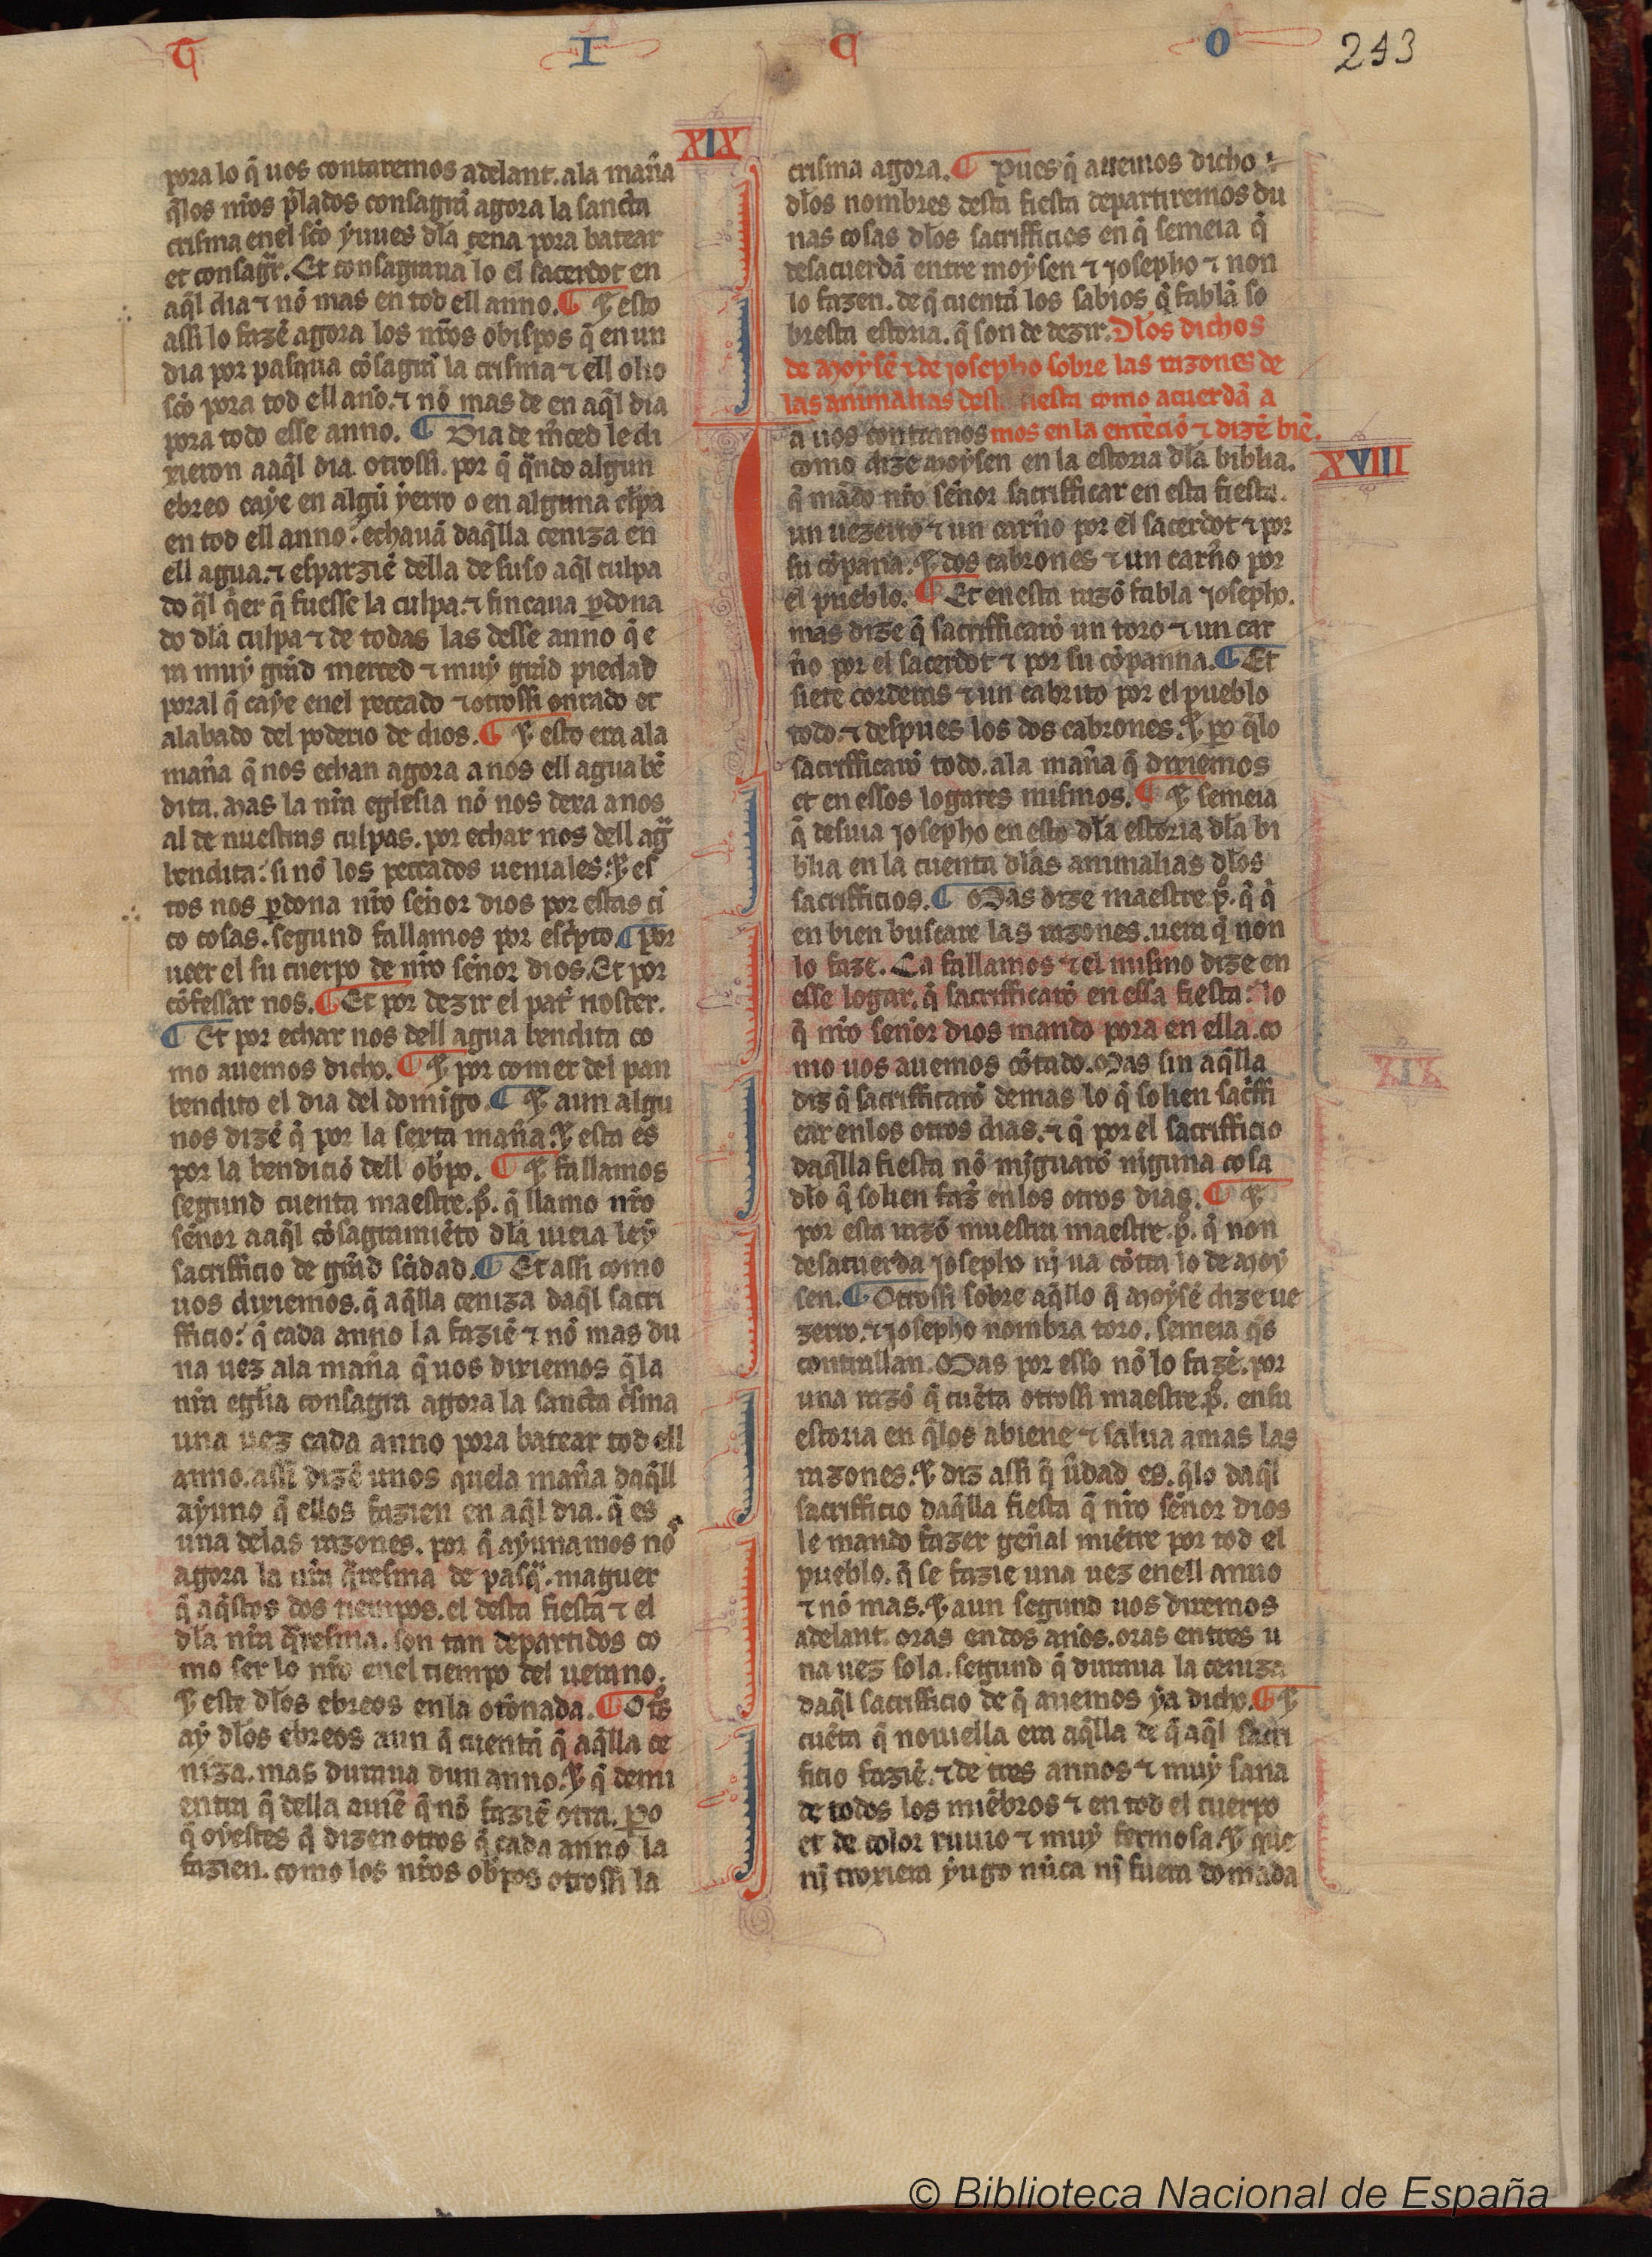 T I C O 293
XIX
pora lo q̃ uos contaremos adelant. ala mañra
q̃los nr̃os p̃lados consagrã agora la sancta
crisma enel sc̃o yuues dl̃a cena pora batear
et consagr̃. Et consagraua lo el sacerdot en
aq̃l dia ⁊ nõ mas en tod ell anno. ¶ Y esto
assi lo fazẽ agora los nr̃os obispos q̃ en un
dia por pasqua cõsagrã la crisma ⁊ ell olio
sc̃o pora tod ell año. ⁊ nõ mas de en aq̃l dia
pora todo esse anno. ¶ Dia de mc̃ed le di
xieron aaq̃l dia. otrossi. por q̃ q̃ndo algun
ebreo caye en algũ yerro o en alguna cl̃pa
en tod ell anno: echauã daq̃lla ceniza en
ell agua. ⁊ esparziẽ della de suso aq̃l culpa
do q̃l q̃er q̃ fuesse la culpa. ⁊ fincaua ꝑdona
do dl̃a culpa ⁊ de todas las desse anno q̃ e
ra muy grãd merced ⁊ muy grãd piedad
poral q̃ caye enel peccado ⁊ otrossi onrado et
alabado del poderio de dios. ¶ Y esto era ala
mañra q̃ nos echan agora a nos ell agua bẽ
dita. Mas la nr̃a eglesia nõ nos dexa anos
al de nuestras culpas. por echar nos dell agᷓ
bendita: si nõ los peccados ueniales. Y es
tos nos ꝑdona nr̃o señor dios por estas ci
co cosas. segund fallamos por esc̃pto. ¶ por
ueer el su cuerpo de nr̃o señor dios. Et por
cõfessar nos. ¶ Et por dezir el pat̃ noster.
¶ Et por echar nos dell agua bendita co
mo auemos dicho. ¶ Y por comer del pan
bendito el dia del domĩgo. ¶ Y aun algu
nos dizẽ q̃ por la sexta mañra. Y esta es
por la bendiciõ dell ob̃po. ¶ Y fallamos
segund cuenta maestre .p̃. q̃ llamo nr̃o
señor aaq̃l cõsagramiẽto dl̃a uieia ley
sacrifficio de grãd sc̃idad. ¶ Et assi como
uos dixiemos. q̃ aq̃lla ceniza daq̃l sacri
fficio: q̃ cada anno la faziẽ ⁊ nõ mas du
na uez ala mañra q̃ uos dixiemos q̃la
nr̃a egl̃ia consagra agora la sancta c̃sma
una uez cada anno pora batear tod ell
anno. assi dizẽ unos quela mañra daq̃ll
ayuno q̃ ellos fazien en aq̃l dia. q̃ es
una delas razones. por q̃ ayunamos nõs
agora la nr̃a q̃resma de pasq̃. maguer
q̃ aq̃stos dos tiempos. el desta fiesta ⁊ el
dl̃a nr̃a q̃resma. son tan departidos co
mo ser lo nr̃o enel tiempo del uerano.
Y este dl̃os ebreos enla otõnada. ¶ Ots̃
ay dl̃os ebreos aun q̃ cuentã q̃ aq̃lla ce
niza. mas duraua dun anno. Y q̃ demi
entra q̃ della auiẽ q̃ nõ faziẽ otra. ꝑo
q̃ oyestes q̃ dizen otros q̃ cada anno la
fazien. como los nr̃os ob̃pos otrossi la
crisma agora. ¶ Pues q̃ auemos dicho
dl̃os nombres desta fiesta departiremos du
nas cosas dl̃os sacrifficios en q̃ semeia q̃
desacuerdã entre moysen ⁊ iosepho ⁊ non
lo fazen. de q̃ cuentã los sabios q̃ fablã so
bresta estoria. q̃ son de dezir. Dl̃os dichos
de Moysẽ ⁊ de iosepho sobre las razones de
las animalias desta fiesta como acuerdã a
mos en la entẽciõ ⁊ dizẽ biẽ.
XVIII
a uos contamos
como dize Moysen en la estoria dl̃a biblia.
q̃ mãdo nr̃o señor sacrifficar en esta fiesta.
un uezerro ⁊ un carñro por el sacerdot ⁊ por
su cõpaña. Y dos cabrones ⁊ un carñro por
el pueblo. ¶ Et enesta razõ fabla iosepho.
mas dize q̃ sacrifficarõ un toro ⁊ un car
ñro por el sacerdot ⁊ por su cõpanna. ¶ Et
siete corderos ⁊ un cabrito por el pueblo
todo. ⁊ despues los dos cabrones. Y ꝑo q̃lo
sacrifficarõ todo. ala mañra q̃ dixiemos
et en essos logares mismos. ¶ Y semeia
q̃ desuia iosepho en esto dl̃a estoria dl̃a bi
blia en la cuenta dl̃as animalias dl̃os
sacrifficios. ¶ Mas dize maestre .p̃. q̃ q̃
en bien buscare las razones. uera q̃ non
lo faze. Ca fallamos ⁊ el mismo dize en
esse logar. q̃ sacrifficarõ en essa fiesta: lo
q̃ nr̃o señor dios mando pora en ella. co
mo uos auemos cõtado. Mas sin aq̃lla
diz q̃ sacrifficarõ demas lo q̃ solien sac̃ffi
car enlos otros dias. ⁊ q̃ por el sacrifficio
daq̃lla fiesta nõ mĩguarõ nĩguna cosa
dl̃o q̃ solien faz̃ enlos otros dias. ¶ Y
por esta razõ muestra maestre .p̃. q̃ non
desacuerda iosepho nĩ ua cõtra lo de Moy
sen. ¶ Otrossi sobre aq̃llo q̃ Moysẽ dize ue
zerro. ⁊ iosepho nombra toro. semeia q̃s
contrallan. Mas por esso nõ lo fazẽ. por
una razõ q̃ cuẽta otrossi maestre .p̃. en su
estoria en q̃los abiene ⁊ salua amas las
razones. Y diz assi q̃ ũdad es. q̃lo daq̃l
sacrifficio daq̃lla fiesta q̃ nr̃o señor dios
le mando fazer geñal miẽtre por tod el
pueblo. q̃ se fazie una uez enell anno
⁊ nõ mas. Y aun segund uos diremos
adelant. oras en dos años. oras en tres u
na uez sola. segund q̃ duraua la ceniza
daq̃l sacrifficio de q̃ auemos ya dicho. ¶ Y
cuẽta q̃ nouiella era aq̃lla de q̃ aq̃l sacri
ficio faziẽ. ⁊ de tres annos ⁊ muy sana
de todos los miẽbros ⁊ en tod el cuerpo
et de color ruuio ⁊ muy fermosa. Y que
nĩ troxiera yugo nũca nĩ fuera domada
XIX
© Biblioteca Nacional de España